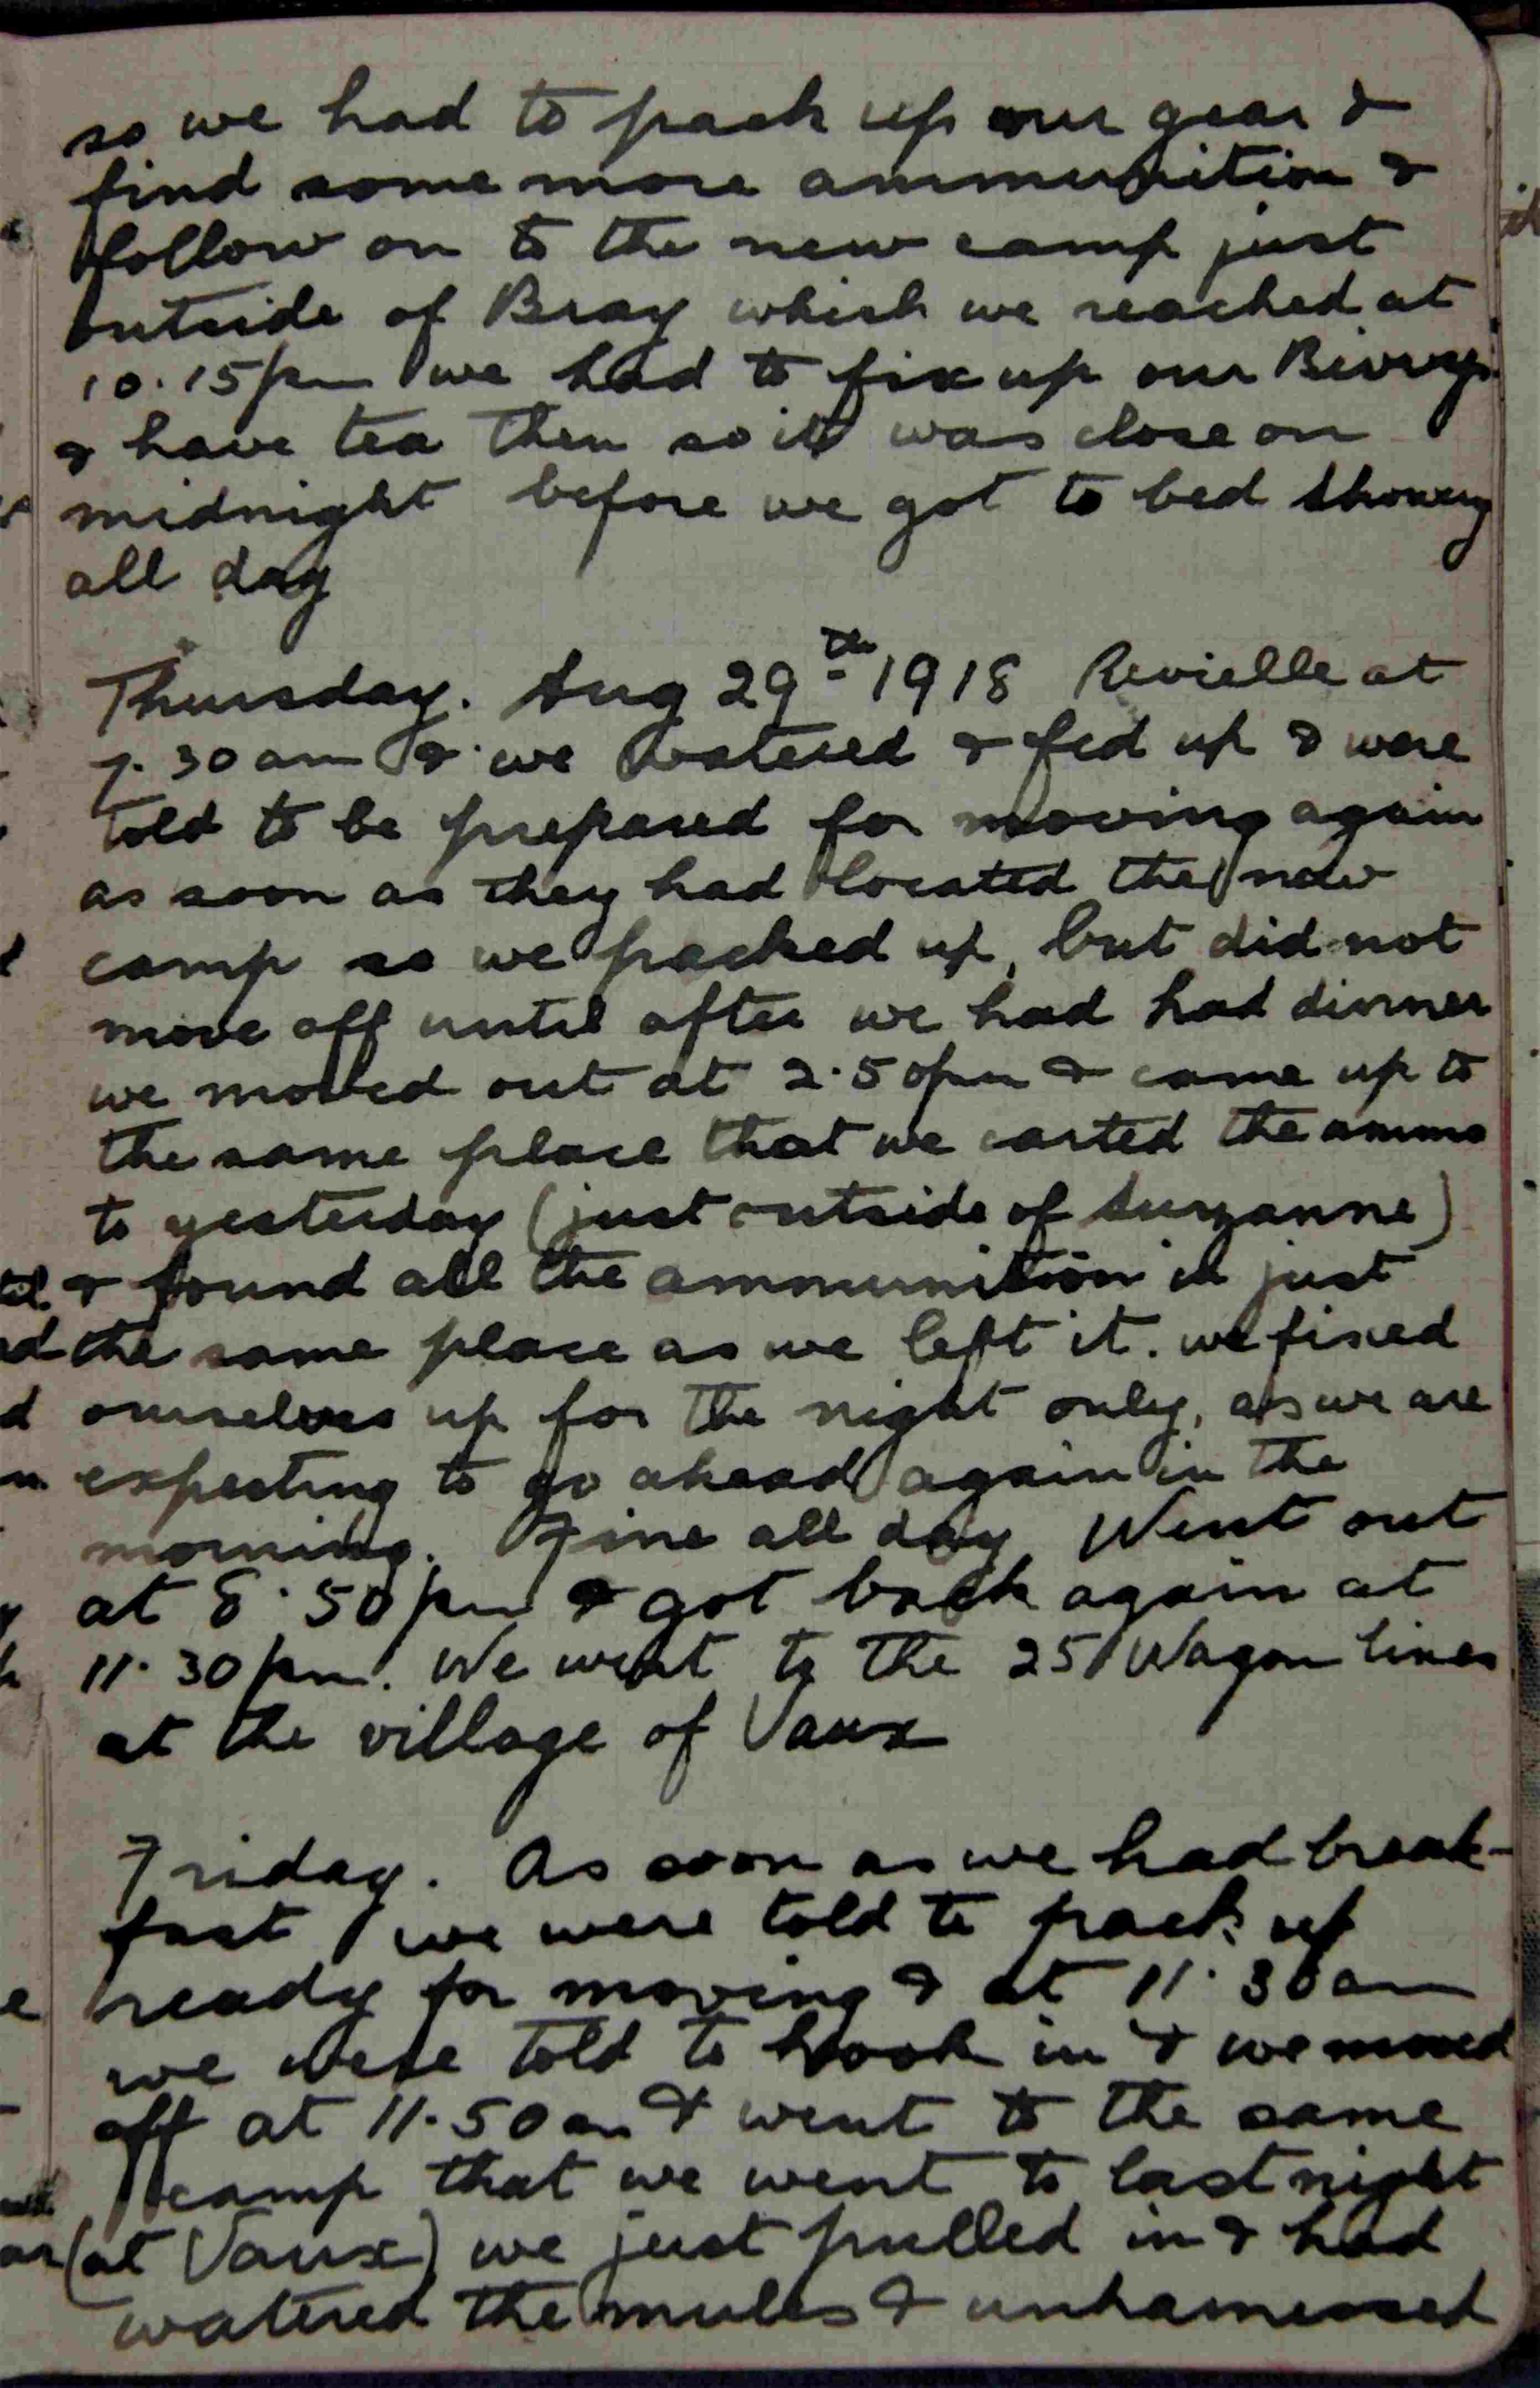 so we had to pack up our gear &
find some more ammunition &
follow on to the new camp just
outside of Bray which we reached at
10.15pm we had to fix up our Bivvys
& have tea then so it was close on
midnight before we got to bed Showery
all day
Thursday. Aug 29th 1918 Revielle at
7.30am & we watered & fed up & were
told to be prepared for moving again
as soon as they had located the new
camp so we packed up, but did not
move off until after we had had dinner
we moved out at 2.50pm & came up to
the same place that we carted the ammo
to yesterday (just outside of Suzanne)
& found all the ammunition in just
the same place as we left it. we fixed
ourselves up for the night only, as we are
expecting to go ahead again in the
morning. Fine all day Went out
at 8.50pm & got back again at
11.30pm. We went to the 25 Wagon lines
at the village of Vaux
Friday. As soon as we had break-
fast we were told to pack up
ready for moving & at 11.30am
we were told to hook in & we moved
off at 11.50am & went to the same
camp that we went to last night
(at Vaux) we just pulled in & had
watered the mules & unharnessed